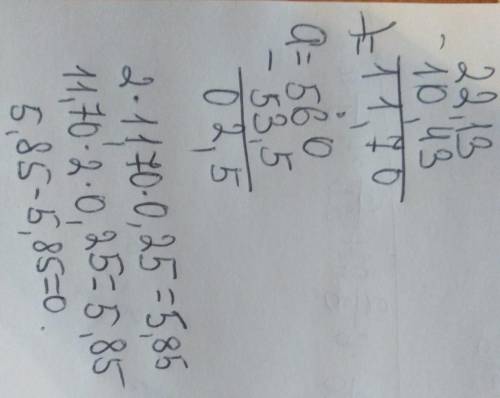 22,13
- 10,43
t= 11,70
a= 56,0
- 53,5
02,5
2·11,70·0,25=5,85
11,70·2·0,25=5,85
5,85-5,85=0.